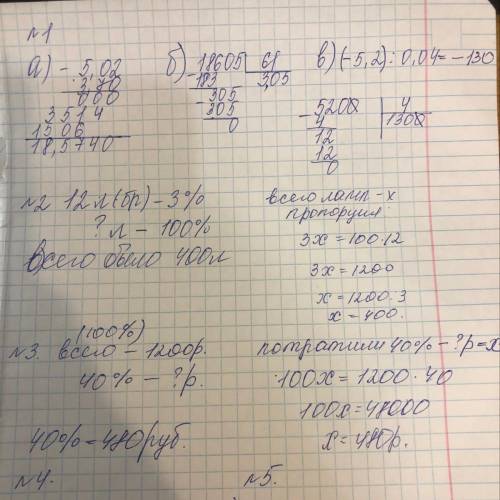 №1
а) - 5,02
3,70
000
3514
1506
18,5740
б) 18605 | 61
- 183 305
305
305
0
в) (-5,2) : 0,04 = -130
- 5200 | 4
4 1300
12
12
0
№2 12 л (бр) - 3%
? л - 100%
Всего было 400л
всего ламп - х
пропорция
3х = 100·12
3х = 1200
х = 1200:3
х = 400.
(100%)
№3. всего - 1200р.
40% - ?р.
40% = 480 руб.
потратили 40% - ?р = х
100х = 1200·40
100х = 48000
х = 480р.
№4.
№5.